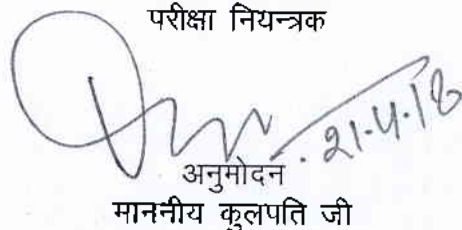 परीक्षा नियन्त्रक
21.4.18
अनुमोदन
माननीय कुलपति जी